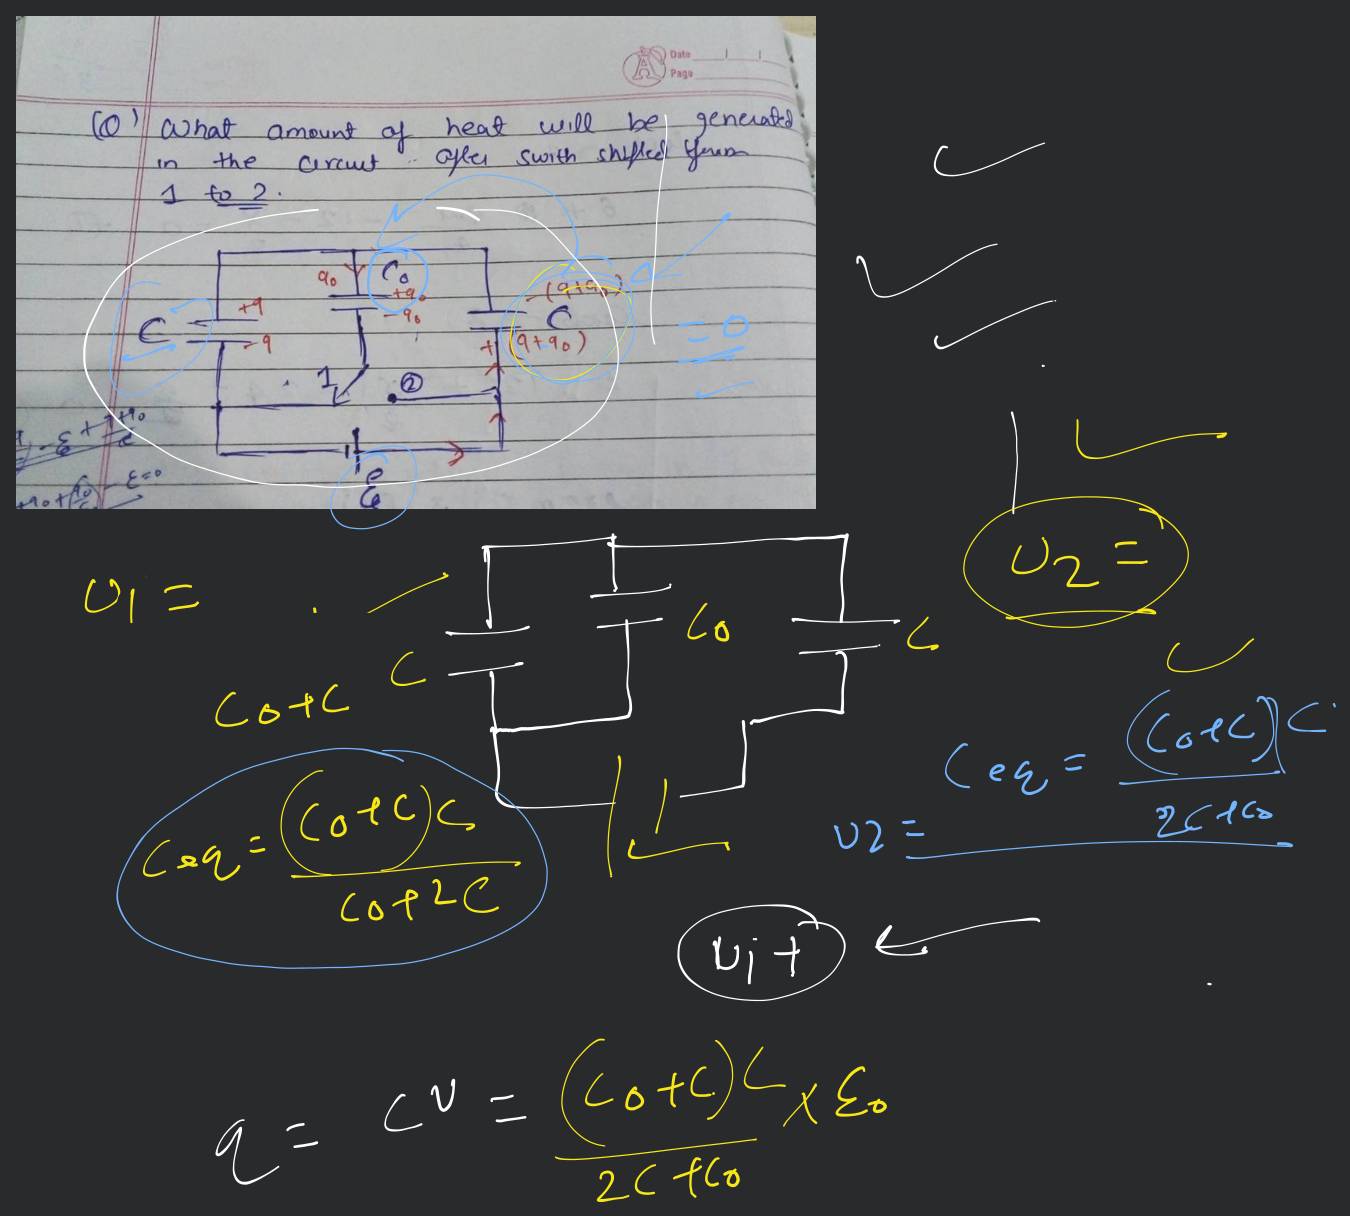 Date
Page
(Q) What amount of heat will be generated
in the circuit after swith shifted from
1 to 2.
C
+q
-q
q₀
C₀
+q₀
-q₀
-(q+q₀)
C
+(q+q₀)
= 0
1
②
ε
- ε + 
- ε=0
U₁ =
U₂ =
C
C₀
C
C₀+C
Ceq = (C₀+C)C / C₀+2C
Ceq = (C₀+C)C / 2C+C₀
U2 =
Ui +
q = CV = (C₀+C)C / 2C+C₀ × ε₀